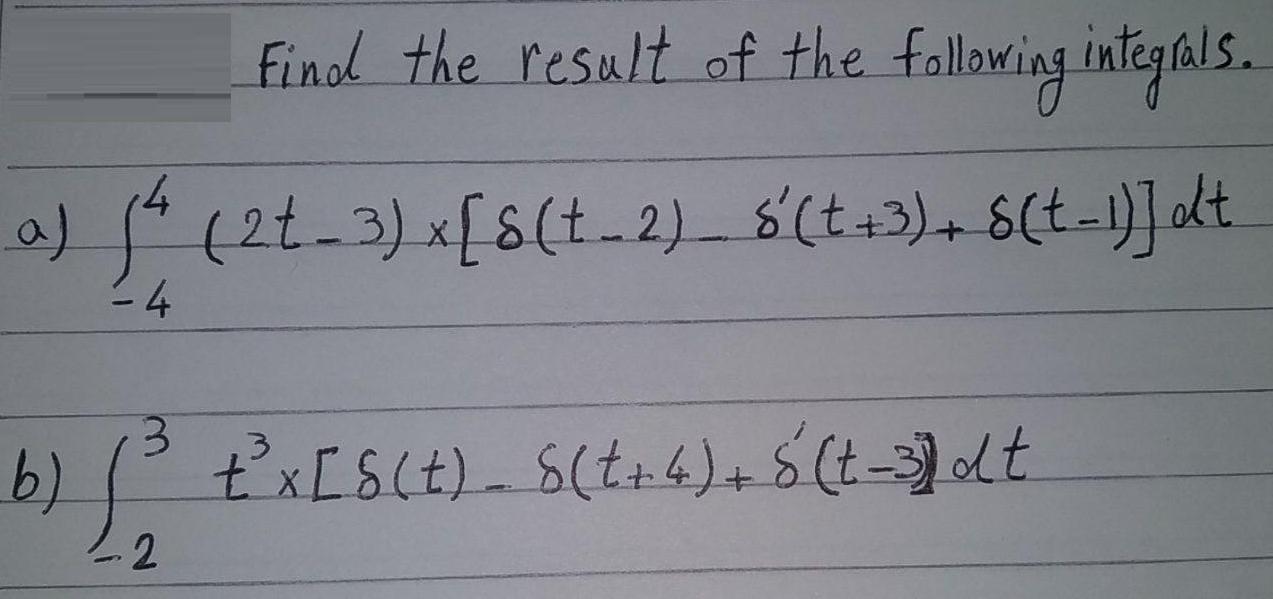 Find the result of the following integrals.
a) ∫₋₄⁴ (2t-3)×[δ(t-2)-δ'(t+3)+δ(t-1)]dt
b) ∫₋₂³ t³×[δ(t)-δ(t+4)+δ'(t-3)]dt